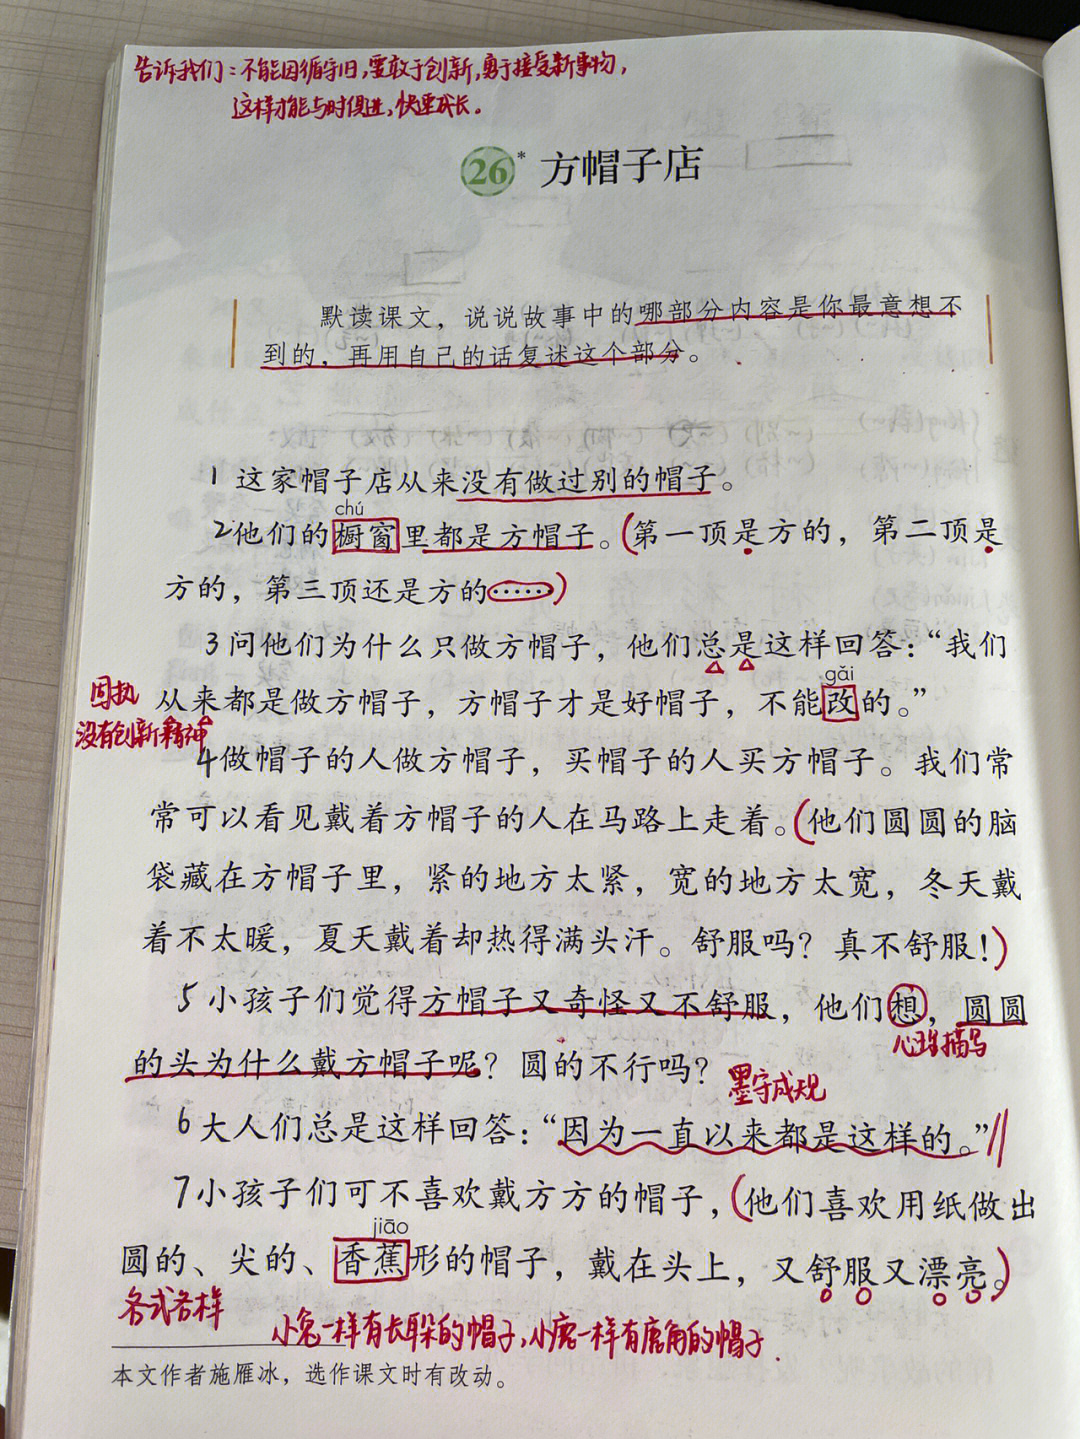 告诉我们：不能因循守旧，要敢于创新，勇于接受新事物，
这样才能与时俱进，快速成长。
26* 方帽子店
默读课文，说说故事中的哪部分内容是你最意想不
到的，再用自己的话复述这个部分。
1 这家帽子店从来没有做过别的帽子。
chú
2 他们的橱窗里都是方帽子。（第一顶是方的，第二顶是
方的，第三顶还是方的……）
3 问他们为什么只做方帽子，他们总是这样回答：“我们
gǎi
固执 从来都是做方帽子，方帽子才是好帽子，不能改的。”
没有创新精神
4 做帽子的人做方帽子，买帽子的人买方帽子。我们常
常可以看见戴着方帽子的人在马路上走着。（他们圆圆的脑
袋藏在方帽子里，紧的地方太紧，宽的地方太宽，冬天戴
着不太暖，夏天戴着却热得满头汗。舒服吗？真不舒服！）
5 小孩子们觉得方帽子又奇怪又不舒服，他们想，圆圆
心理描写
的头为什么戴方帽子呢？圆的不行吗？
墨守成规
6 大人们总是这样回答：“因为一直以来都是这样的。”
7 小孩子们可不喜欢戴方方的帽子，（他们喜欢用纸做出
jiāo
圆的、尖的、香蕉形的帽子，戴在头上，又舒服又漂亮。）
各式各样
小兔一样有长耳朵的帽子，小鹿一样有鹿角的帽子.
本文作者施雁冰，选作课文时有改动。